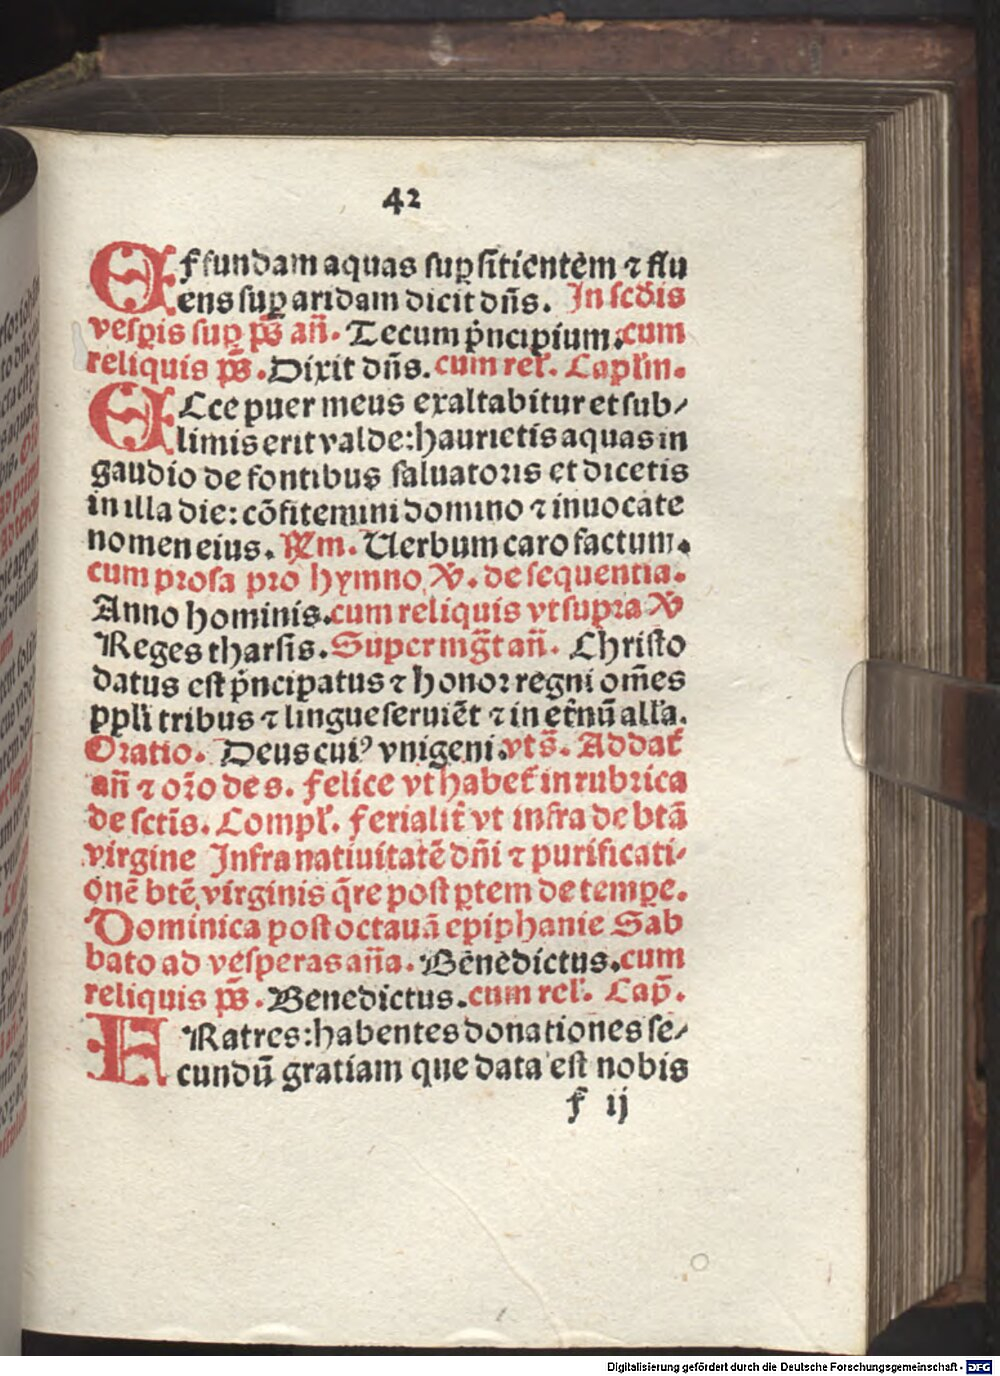 42
Effundam aquas suꝑ sitientem ⁊ flu
ens suꝑ aridam dicit dñs. In scd̓is
vesꝑis suꝑ ps̃ añ. Tecum pͥncipium. cum
reliquis ps̃. Dixit dñs. cum rel̓. Capl̓m.
Ecce puer meus exaltabitur et sub/
limis erit valde: haurietis aquas in
gaudio de fontibus saluatoris et dicetis
in illa die: cõfitemini domino ⁊ inuocate
nomen eius. R̃m. Uerbum caro factum.
cum prosa pro hymno ℣. de sequentia.
Anno hominis. cum reliquis vt supra ℣
Reges tharsis. Super mg̃t añ. Christo
datus est pͥncipatus ⁊ honor regni om̃es
ppl̓i tribus ⁊ lingue seruiẽt ⁊ in et̓nũ all̓a.
Oratio. Deus cuiꝰ vnigeni. vts̃. Addat̓
añ ⁊ oro̅ de s. Felice vt habet̓ in rubrica
de sctĩs. Compl̓. ferialit̓ vt infra de btã
virgine Infra natiuitatẽ dñi ⁊ purificati/
onẽ btẽ virginis q̃re post ꝑtem de tempe̅.
Dominica post octauã epiphanie Sab
bato ad vesperas añа. Benedictus. cum
reliquis ps̃. Benedictus. cum rel̓. Cap̃.
FRatres: habentes donationes se/
cundũ gratiam que data est nobis
f ij
Digitalisierung gefördert durch die Deutsche Forschungsgemeinschaft - DFG